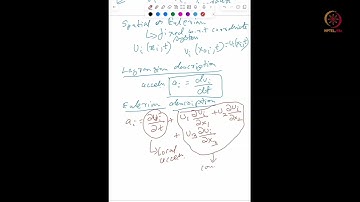 Spatial or Eulerian
↳ fixed w.r.t coordinate
system
vi (xi,t) vi (xoi,t) = u(xi,t)
Lagrangian description
acceln ai = dvi/dt
Eulerian description
ai = ∂vi/∂t + v1 ∂vi/∂x1 + v2 ∂vi/∂x2
+ v3 ∂vi/∂x3
↳ local
acceln
con
NPTEL